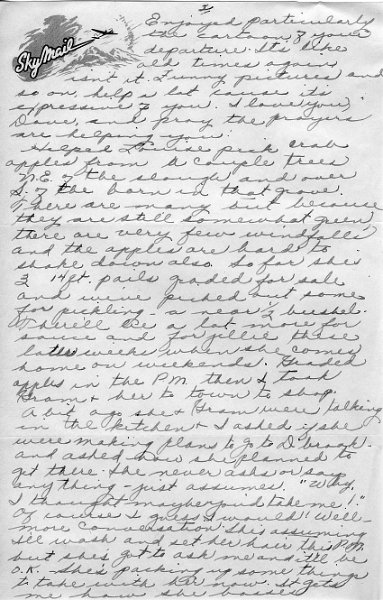 2
Sky Mail
Enjoyed particularly
the cartoon of your
departure. It's like
old times again
isn't it. Funny pictures and
so on, help a lot cause its
expressive of you. I love you,
Dave, and pray the prayers
are helping you.
Helped Louise pick crab
apples from a couple trees
N.E. of the slough and over
S. of the barn in that grove.
There are many but because
they are still somewhat green
there are very few windfalls
and the apples are hard to
shake down also. So far she's
3 14 qt. pails graded for sale
and we've picked out some
for pickling - a near 1/2 bushel.
There'll be a lot more for
sauce and for jellie these
later weeks when she comes
home on weekends. Graded
apples in the P.M. then I took
Gram & her to town to shop.
A bit ago she & Gram were talking
in the kitchen & I asked if she
were making plans to go to D.
and asked how she planned to
get there. She never asks or say
any thing - just assumes. "Why,
I thought maybe you'd take me!"
Of course I guess I would! Well -
more conversation. She's assuming
I'll wash and set her hair this P.M.
but she's got to ask me and it'll be
O.K. She's packing up some things
to take with her now. It gets
me how she bosses